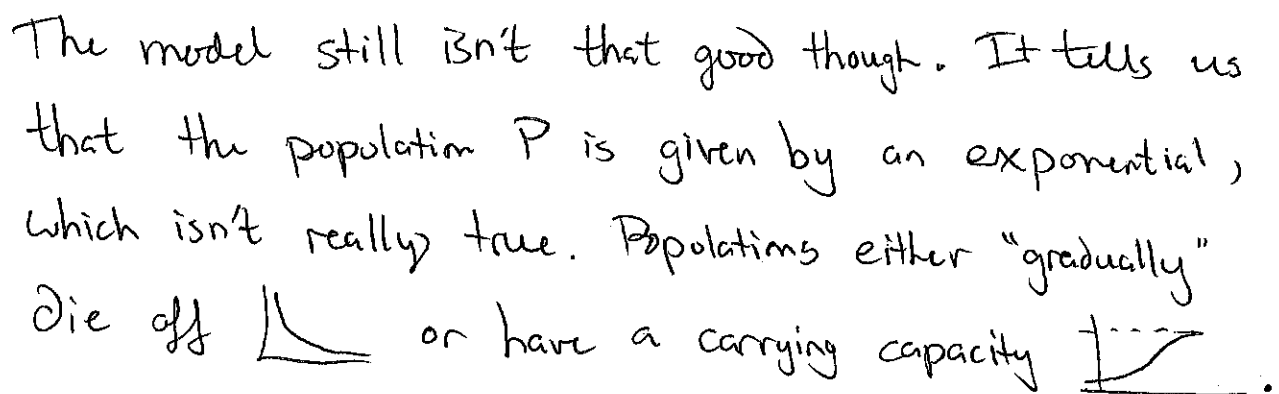 The model still isn't that good though. It tells us
that the population P is given by an exponential,
which isn't really true. Populations either "gradually"
die off or have a carrying capacity .